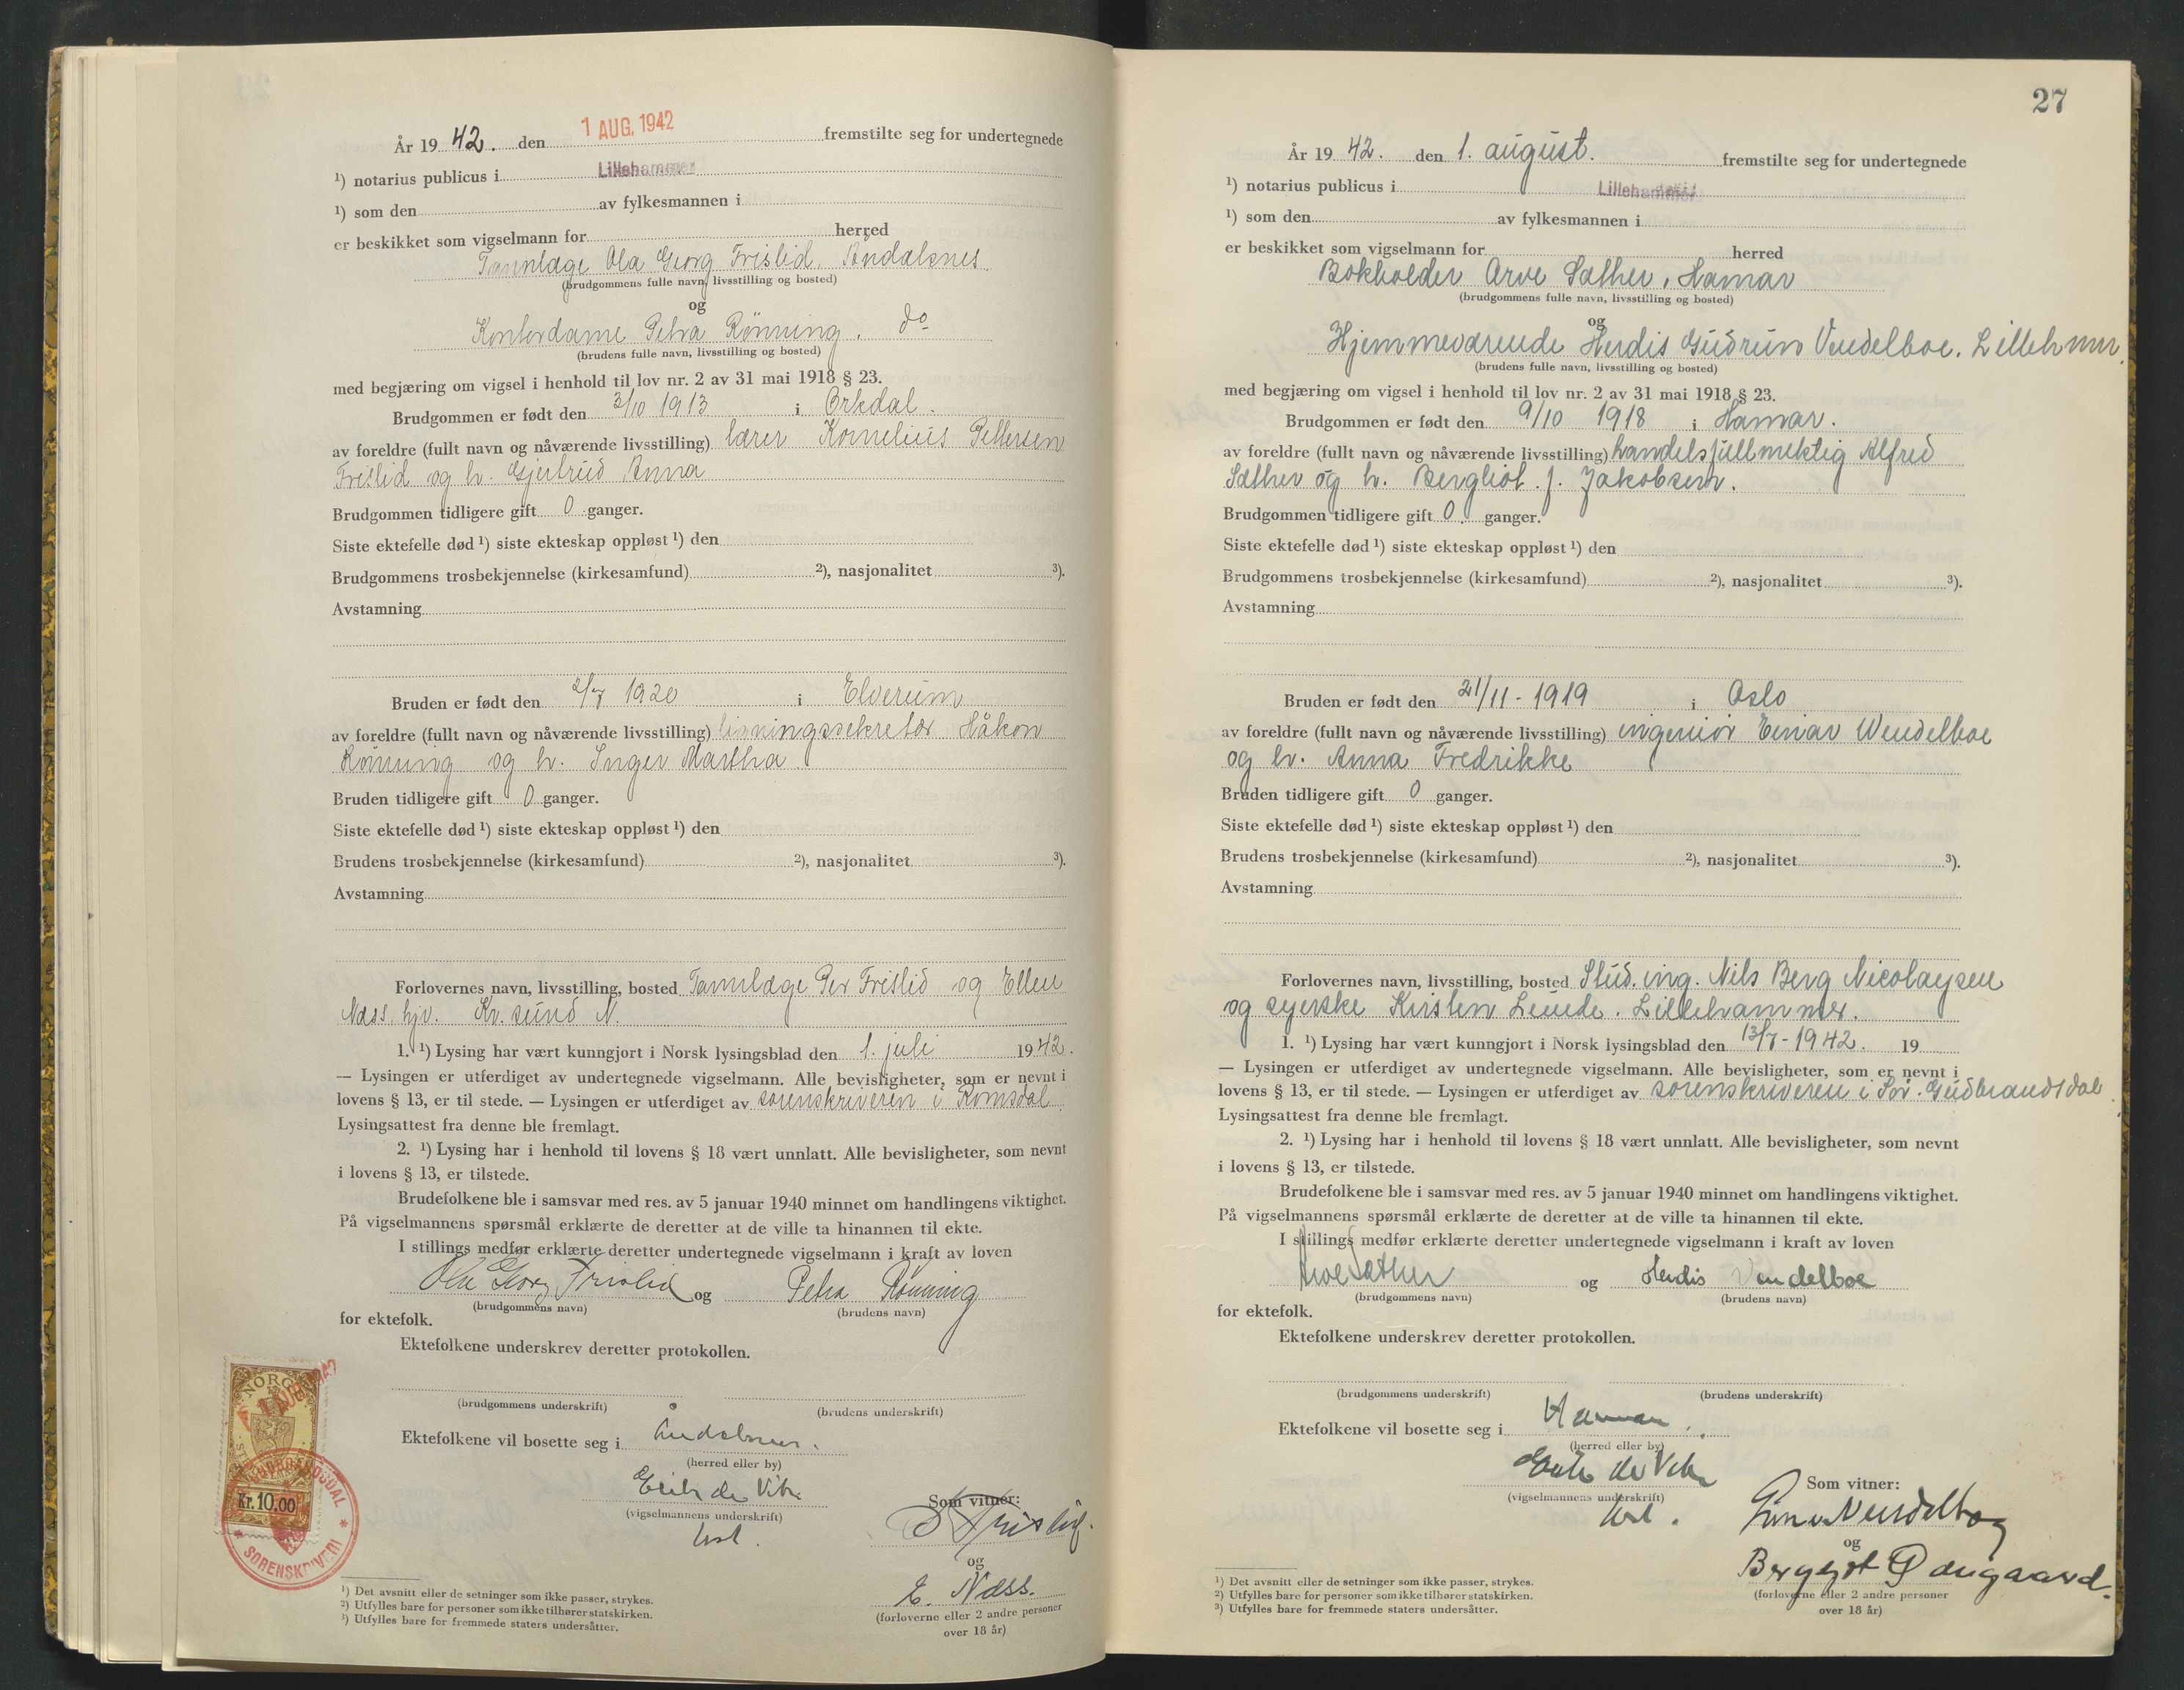 År 19 42. den 1 AUG. 1942 fremstilte seg for undertegnede
¹) notarius publicus i Lillehammer
¹) som den av fylkesmannen i
er beskikket som vigselmann for herred
Tannlæge Ola Georg Frislid, Åndalsnes
(brudgommens fulle navn, livsstilling og bosted)
og
Kontordame Petra Rønning. do
(brudens fulle navn, livsstilling og bosted)
med begjæring om vigsel i henhold til lov nr. 2 av 31 mai 1918 § 23.
Brudgommen er født den 3/10 1913 i Orkdal.
av foreldre (fullt navn og nåværende livsstilling) lærer Kornelius Pettersen
Frislid og h. Gjertrud Anna
Brudgommen tidligere gift 0 ganger.
Siste ektefelle død ¹) siste ekteskap oppløst ¹) den
Brudgommens trosbekjennelse (kirkesamfund) ²), nasjonalitet ³).
Avstamning
Bruden er født den 2/7 1920 i Elverum
av foreldre (fullt navn og nåværende livsstilling) ligningssekretær Håkon
Rønning og h. Inger Martha
Bruden tidligere gift 0 ganger.
Siste ektefelle død ¹) siste ekteskap oppløst ¹) den
Brudens trosbekjennelse (kirkesamfund) ²), nasjonalitet ³).
Avstamning
Forlovernes navn, livsstilling, bosted Tannlæge Per Frislid og Ellen
Næss, hjv. Kr. sund N.
1. ¹) Lysing har vært kunngjort i Norsk lysingsblad den 1. juli 1942.
— Lysingen er utferdiget av undertegnede vigselmann. Alle bevisligheter, som er nevnt i
lovens § 13, er til stede. — Lysingen er utferdiget av sorenskriveren i Romsdal.
Lysingsattest fra denne ble fremlagt.
2. ¹) Lysing har i henhold til lovens § 18 vært unnlatt. Alle bevisligheter, som nevnt
i lovens § 13, er tilstede.
Brudefolkene ble i samsvar med res. av 5 januar 1940 minnet om handlingens viktighet.
På vigselmannens spørsmål erklærte de deretter at de ville ta hinannen til ekte.
I stillings medfør erklærte deretter undertegnede vigselmann i kraft av loven
Ola Georg Frislid og Petra Rønning
(brudgommens navn) (brudens navn)
for ektefolk.
Ektefolkene underskrev deretter protokollen.
(brudgommens underskrift) (brudens underskrift)
Ektefolkene vil bosette seg i Åndalsnes.
(herred eller by)
Erik de Vibe
(vigselmannens underskrift)
Som vitner:
P Frislid.
og
E. Næss.
(forloverne eller 2 andre personer
over 18 år)
NORGE
1 AUG 1942
Kr. 10.00
GUDBRANDSDAL
* SORENSKRIVERI *
¹) Det avsnitt eller de setninger som ikke passer, strykes.
²) Utfylles bare for personer som ikke tilhører statskirken.
³) Utfylles bare for fremmede staters undersåtter.
27
År 19 42. den 1. august. fremstilte seg for undertegnede
¹) notarius publicus i Lillehammer
¹) som den av fylkesmannen i
er beskikket som vigselmann for herred
Bokholder Arve Sæther, Hamar
(brudgommens fulle navn, livsstilling og bosted)
og
Hjemmeværende Herdis Gudrun Vendelboe. Lillehmr.
(brudens fulle navn, livsstilling og bosted)
med begjæring om vigsel i henhold til lov nr. 2 av 31 mai 1918 § 23.
Brudgommen er født den 9/10 1918 i Hamar.
av foreldre (fullt navn og nåværende livsstilling) handelsfullmektig Alfred
Sæther og h. Bergliot f. Jakobsen.
Brudgommen tidligere gift 0. ganger.
Siste ektefelle død ¹) siste ekteskap oppløst ¹) den
Brudgommens trosbekjennelse (kirkesamfund) ²), nasjonalitet ³).
Avstamning
Bruden er født den 21/11 - 1919 i Oslo
av foreldre (fullt navn og nåværende livsstilling) ingeniør Einar Wendelboe
og h. Anna Fredrikke
Bruden tidligere gift 0 ganger.
Siste ektefelle død ¹) siste ekteskap oppløst ¹) den
Brudens trosbekjennelse (kirkesamfund) ²), nasjonalitet ³).
Avstamning
Forlovernes navn, livsstilling, bosted Stud. ing. Nils Berg Nicolaysen
og syerske Kirsten Lunde. Lillehammer.
1. ¹) Lysing har vært kunngjort i Norsk lysingsblad den 13/7 - 1942. 19
— Lysingen er utferdiget av undertegnede vigselmann. Alle bevisligheter, som er nevnt i
lovens § 13, er til stede. — Lysingen er utferdiget av sorenskriveren i Sør-Gudbrandsdal.
Lysingsattest fra denne ble fremlagt.
2. ¹) Lysing har i henhold til lovens § 18 vært unnlatt. Alle bevisligheter, som nevnt
i lovens § 13, er tilstede.
Brudefolkene ble i samsvar med res. av 5 januar 1940 minnet om handlingens viktighet.
På vigselmannens spørsmål erklærte de deretter at de ville ta hinannen til ekte.
I stillings medfør erklærte deretter undertegnede vigselmann i kraft av loven
Arve Sæther og Herdis Vendelboe
(brudgommens navn) (brudens navn)
for ektefolk.
Ektefolkene underskrev deretter protokollen.
(brudgommens underskrift) (brudens underskrift)
Ektefolkene vil bosette seg i Hamar.
(herred eller by)
Erik de Vibe
(vigselmannens underskrift)
Som vitner:
Einar Wendelboe
og
Bergljot Daugaard.
(forloverne eller 2 andre personer
over 18 år)
¹) Det avsnitt eller de setninger som ikke passer, strykes.
²) Utfylles bare for personer som ikke tilhører statskirken.
³) Utfylles bare for fremmede staters undersåtter.